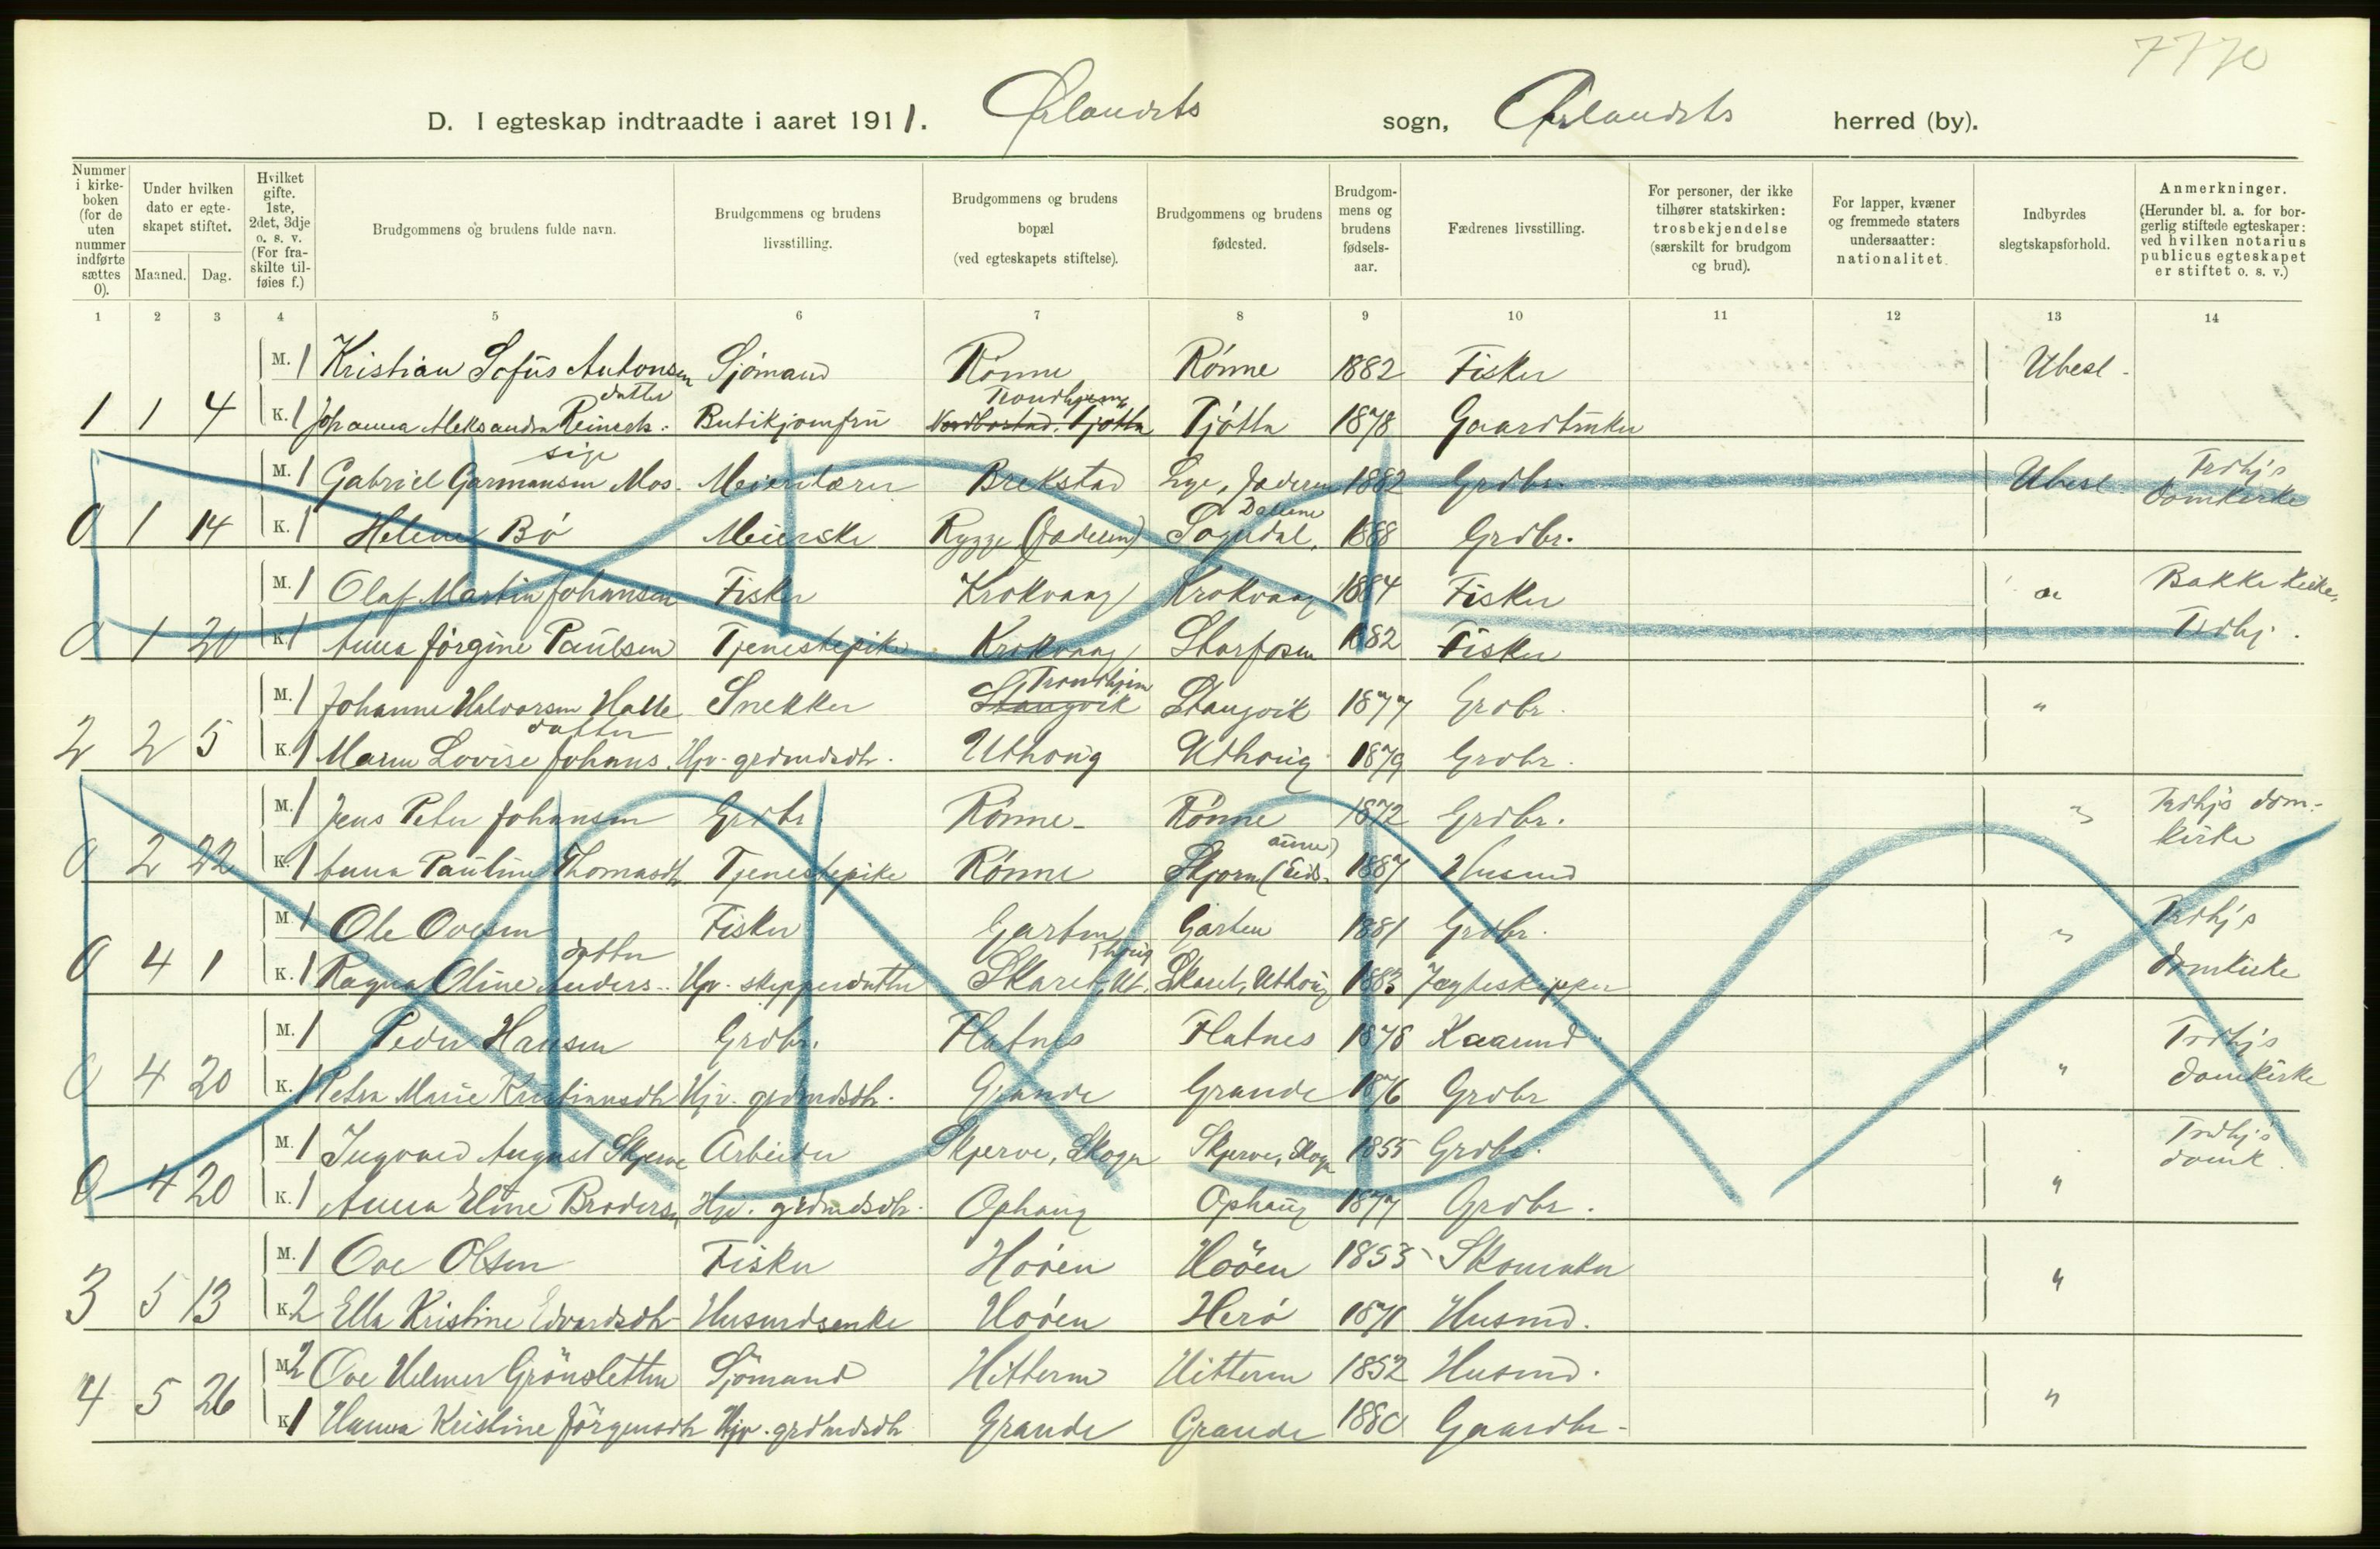 7770
D. I egteskap indtraadte i aaret 1911. Ørlandets sogn, Ørlandets herred (by).
Nummer i kirkeboken (for de uten nummer indførte sættes 0). Under hvilken dato er egteskapet stiftet. Maaned. Dag. Hvilket gifte. 1ste, 2det, 3dje o. s. v. (For fraskilte tilføies f.) Brudgommens og brudens fulde navn. Brudgommens og brudens livsstilling. Brudgommens og brudens bopæl (ved egteskapets stiftelse). Brudgommens og brudens fødested. Brudgommens og brudens fødselsaar. Fædrenes livsstilling. For personer, der ikke tilhører statskirken: trosbekjendelse (særskilt for brudgom og brud). For lapper, kvæner og fremmede staters undersaatter: nationalitet. Indbyrdes slegtskapsforhold. Anmerkninger. (Herunder bl. a. for borgerlig stiftede egteskaper: ved hvilken notarius publicus egteskapet er stiftet o. s. v.)
1 2 3 4 5 6 7 8 9 10 11 12 13 14
M. 1 Kristian Sofus Antonsen Sjömand Rönne Rönne 1882 Fisker Ubesl.
datter Trondhjem
1 1 4 K. 1 Johanna Aleksandra Reinerts: Butikjomfru Nordbostad. Tjötta Tjötta 1878 Gaardbruker
sige
M. 1 Gabriel Garmansen Mos. Meierilærer Brekstad Lye, Jæderen 1882 Grdbr. Ubesl. Trdhj's domkirke
Dalene
0 1 14 K. 1 Helene Bö Meierske Rygge (Jæderen) Sogndal, 1888 Grdbr.
M. 1 Olaf Martin Johansen Fisker Krokvaag Krokvaag 1884 Fisker " Bakke kirke,
0 1 20 K. 1 Anna Jörgine Paulsen Tjenestepike Krokvaag Storfosen 1882 Fisker Trdhj.
Trondhjem
M. 1 Johannes Halvorsen Halle Snekker Stangvik Stangvik 1877 Grdbr. "
datter
2 2 5 K. 1 Maren Lovise Johans. Hjv. grdmdsdtr. Uthoug Uthoug 1879 Grdbr.
M. 1 Jens Peter Johansen Grdbr Rönne Rönne 1872 Grdbr. " Trdhj's domkirke
aune)
0 2 22 K. 1 Anna Pauline Thomasdtr Tjenestepike Rönne Skjörn (Eids- 1887 Husmd
M. 1 Ole Ovesen Fisker Garten Garten 1881 Grdbr. " Trdhj's
datter thoug
0 4 1 K. 1 Ragna Oline Anders.. Hjv. skipperdatter Skaret, Ut. Skaret, Uthoug 1883 Jægteskipper domkirke
M. 1 Peder Hansen Grdbr. Flatnes Flatnes 1878 Kaarmd. " Trdhj's
0 4 20 K. 1 Petra Marie Kristiansdtr Hjv. grdmdsdtr. Grande Grande 1876 Grdbr domkirke
M. 1 Ingvard August Skjerve Arbeider Skjerve, Skogn Skjerve, Skogn 1855 Grdbr. " Trdhj's domk.
0 4 20 K. 1 Anna Eline Brodersen Hjv. grdmdsdtr. Ophaug Ophaug 1877 Grdbr.
M. 1 Ove Olsen Fisker Hoöen Hoöen 1855 Skomaker "
3 5 13 K. 2 Ella Kristine Edvardsdtr Husmdsenke Hoöen Herö 1871 Husmd.
M. 2 Ove Helmer Grönsletten Sjömand Hitteren Hitteren 1852 Husmd. "
4 5 26 K. 1 Hanna Kristine Jörgensdtr Hjv. grdmdsdtr Grande Grande 1880 Gaardbr.